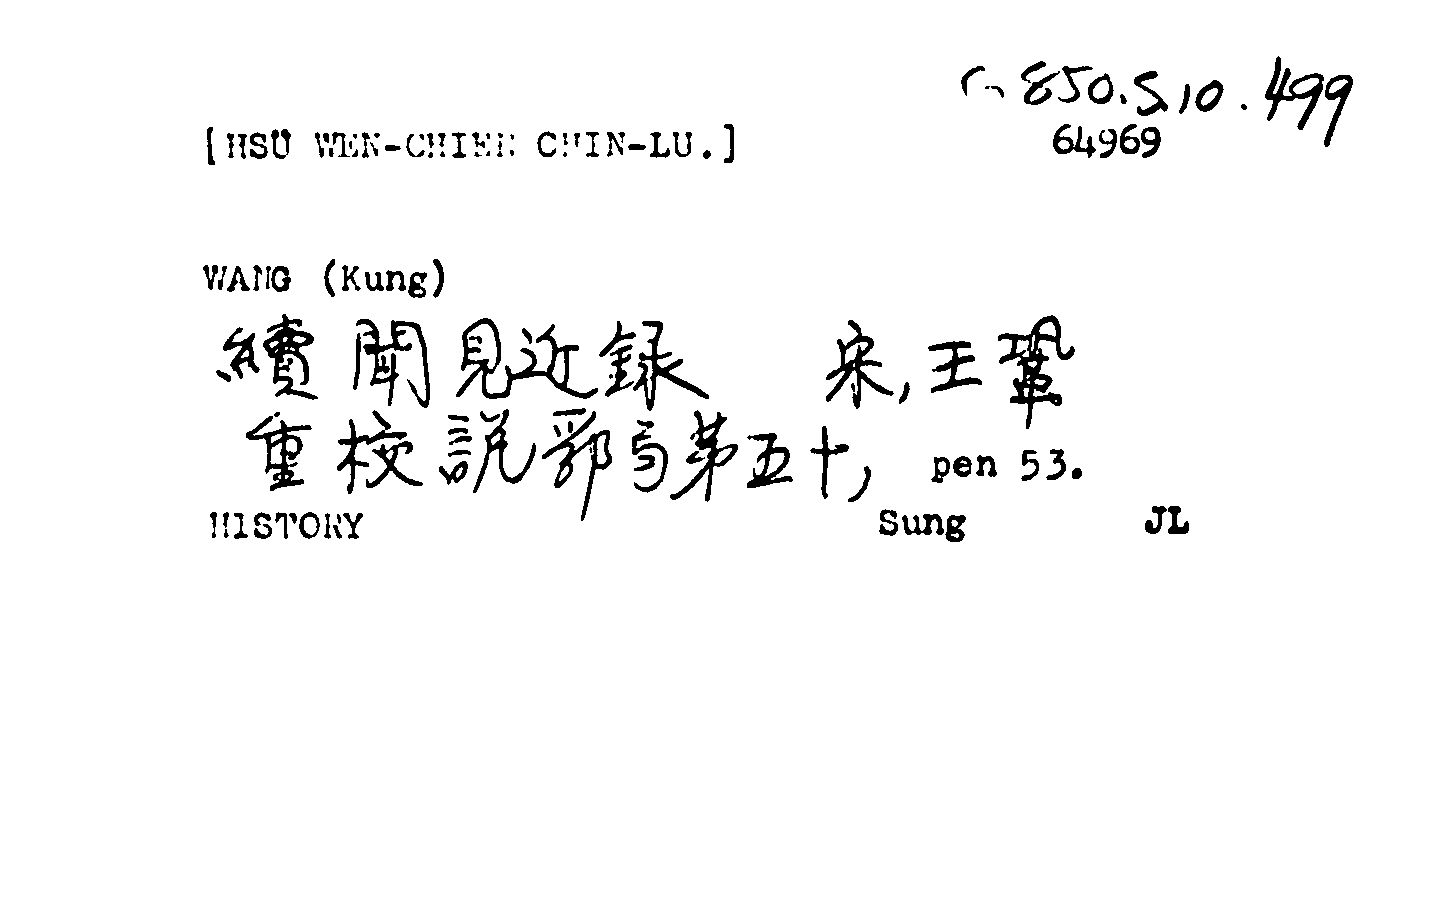 c. 850.5.10.499
[HSÜ WEN-CHIEN CHIN-LU.] 64969
WANG (Kung)
續聞見近録 宋,王鞏
重校説郛弓第五十, pen 53.
HISTORY Sung JL